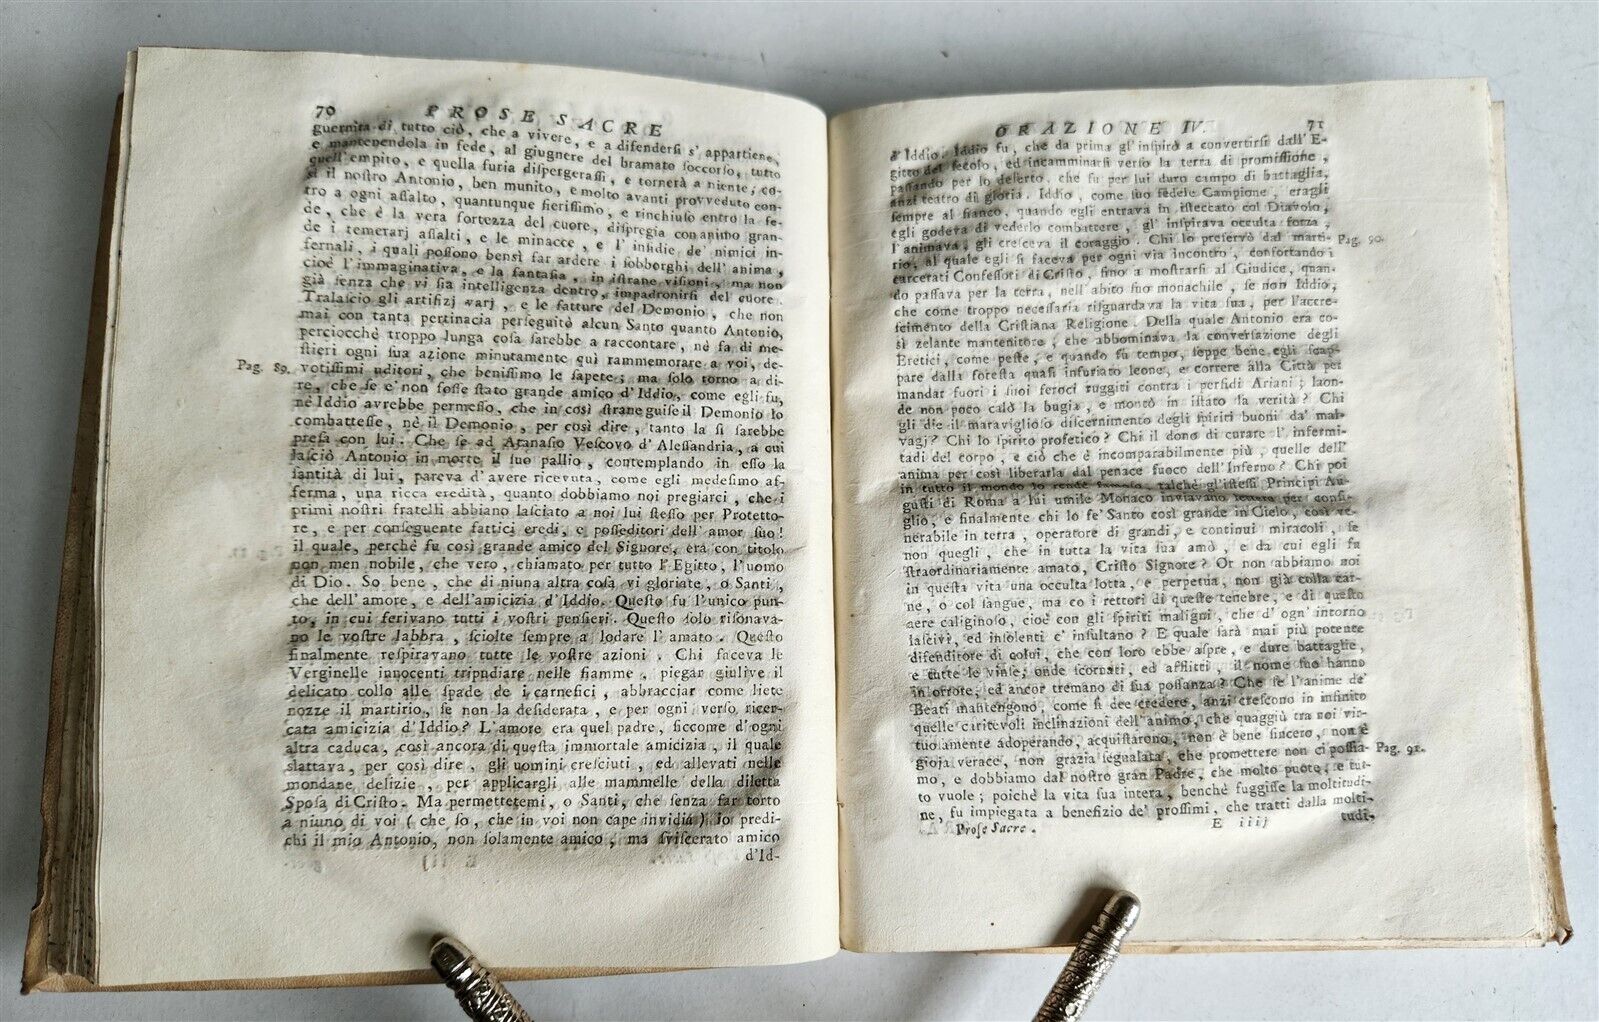 70 PROSE SACRE
guernita di tutto ciò, che a vivere, e a difendersi s' appartiene,
e mantenendola in fede, al giugnere del bramato soccorso, tutto
quell' empito, e quella furia dispergerassi, e tornerà a niente; co-
sì il nostro Antonio, ben munito, e molto avanti provveduto con-
tro a ogni assalto, quantunque fierissimo, e rinchiuso entro la fe-
de, che è la vera fortezza del cuore, dispregia con animo gran-
de i temerarj assalti, e le minacce, e l' insidie de' nimici in-
fernali, i quali possono bensì far ardere i sobborghi dell' anima,
cioè l'immaginativa, e la fantasia, in istrane visioni, ma non
già senza che vi sia intelligenza dentro, impadronirsi del cuore.
Tralascio gli artifizj varj, e le fatture del Demonio, che non
mai con tanta pertinacia perseguitò alcun Santo quanto Antonio,
perciocchè troppo lunga cosa sarebbe a raccontare, nè fa di me-
stieri ogni sua azione minutamente quì rammemorare a voi, de-
Pag. 89. votissimi uditori, che benissimo le sapete; ma solo torno a di-
re, che se e' non fosse stato grande amico d'Iddio, come egli fu,
nè Iddio avrebbe permesso, che in così strane guise il Demonio lo
combattesse, nè il Demonio, per così dire, tanto la si sarebbe
presa con lui. Che se ad Atanasio Vescovo d' Alessandria, a cui
lasciò Antonio in morte il suo pallio, contemplando in esso la
santità di lui, pareva d'avere ricevuta, come egli medesimo af-
ferma, una ricca eredità, quanto dobbiamo noi pregiarci, che i
primi nostri fratelli abbiano lasciato a noi lui stesso per Protetto-
re, e per conseguente fattici eredi, e posseditori dell' amor suo!
il quale, perchè fu così grande amico del Signore, era con titolo
non men nobile, che vero, chiamato per tutto l' Egitto, l'uomo
di Dio. So bene, che di niuna altra cosa vi gloriate, o Santi,
che dell'amore, e dell'amicizia d'Iddio. Questo fu l'unico pun-
to, in cui ferivano tutti i vostri pensieri. Questo solo risonava-
no le vostre labbra, sciolte sempre a lodare l' amato. Questo
finalmente respiravano tutte le vostre azioni. Chi faceva le
Verginelle innocenti tripudiare nelle fiamme, piegar giulive il
delicato collo alle spade de i carnefici, abbracciar come liete
nozze il martirio, se non la desiderata, e per ogni verso ricer-
cata amicizia d'Iddio? L'amore era quel padre, siccome d'ogni
altra caduca, così ancora di questa immortale amicizia, il quale
slattava, per così dire, gli uomini cresciuti, ed allevati nelle
mondane delizie, per applicargli alle mammelle della diletta
Sposa di Cristo. Ma permettetemi, o Santi, che senza far torto
a niuno di voi (che so, che in voi non cape invidia) io predi-
chi il mio Antonio, non solamente amico, ma sviscerato amico
d'Id-
ORAZIONE IV. 71
d'Iddio. Iddio fu, che da prima gl' inspirò a convertirsi dall' E-
gitto del secolo, ed incamminarsi verso la terra di promissione,
passando per lo deserto, che fu per lui duro campo di battaglia,
anzi teatro di gloria. Iddio, come suo fedele Campione, eragli
sempre al fianco, quando egli entrava in isteccato col Diavolo,
egli godeva di vederlo combattere, gl' inspirava occulta forza,
l' animava, gli cresceva il coraggio. Chi lo preservò dal marti- Pag. 90.
rio, al quale egli si faceva per ogni via incontro, confortando i
carcerati Confessori di Cristo, fino a mostrarsi al Giudice, quan-
do passava per la terra, nell' abito suo monachile, se non Iddio,
che come troppo necessaria risguardava la vita sua, per l'accre-
scimento della Cristiana Religione. Della quale Antonio era co-
sì zelante mantenitore, che abbominava la conversazione degli
Eretici, come peste, e quando fu tempo, seppe bene egli scap-
pare dalla foresta quasi infuriato leone, e correre alla Città per
mandar fuori i suoi feroci ruggiti contra i perfidi Ariani; laon-
de non poco calò la bugia, e montò in istato la verità? Chi
gli die il maraviglioso discernimento degli spiriti buoni da' mal-
vagj? Chi lo spirito profetico? Chi il dono di curare l' infermi-
tadi del corpo, e ciò che è incomparabilmente più, quelle dell'
anima per così liberarla dal penace fuoco dell' Inferno? Chi poi
in tutto il mondo lo rendè famoso, talchè gl'istessi Principi Au-
gusti di Roma a lui umile Monaco inviavano lettere per consi-
glio, e finalmente chi lo fe' Santo così grande in Cielo, così ve-
nerabile in terra, operatore di grandi, e continui miracoli, se
non quegli, che in tutta la vita sua amò, e da cui egli fu
straordinariamente amato, Cristo Signore? Or non abbiamo noi
in questa vita una occulta lotta, e perpetua, non già colla car-
ne, o col sangue, ma co i rettori di queste tenebre, e di questo
aere caliginoso, cioè con gli spiriti maligni, che d' ogn' intorno
lascivi, ed insolenti c' insultano? E quale sarà mai più potente
difenditore di colui, che con loro ebbe aspre, e dure battaglie,
e tutte le vinse; onde scornati, ed afflitti, il nome suo hanno
in orrore, ed ancor tremano di sua possanza? Che se l' anime de'
Beati mantengono, come si dee credere, anzi crescono in infinito
quelle caritevoli inclinazioni dell' animo, che quaggiù tra noi vir-
tuosamente adoperando, acquistarono, non è bene sincero, non è
gioja verace, non grazia segnalata, che promettere non ci possia- Pag. 91.
mo, e dobbiamo dal nostro gran Padre, che molto puote, e tut-
to vuole; poichè la vita sua intera, benchè fuggisse la moltitudi-
ne, fu impiegata a benefizio de' prossimi, che tratti dalla molti-
Prose Sacre. E iiij tudi-